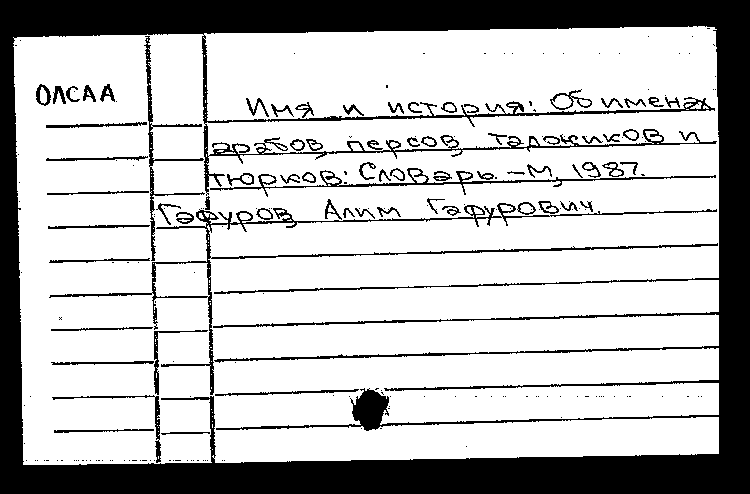 ОЛСАА
Имя и история: Об именах
арабов, персов, таджиков и
тюрков: Словарь. – М, 1987.
Гафуров, Алим Гафурович.